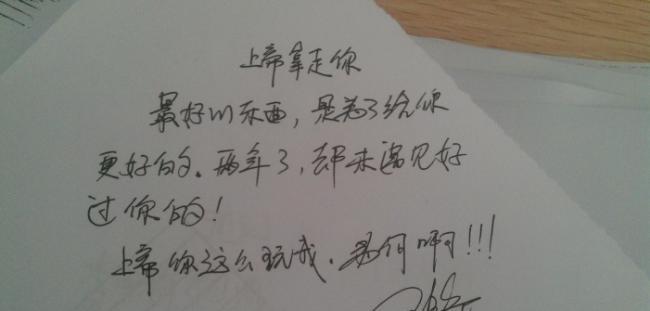 上帝拿走你
最好的东西，是为了给你
更好的。两年了，却未遇见好
过你的！
上帝你这么玩我，为何啊!!!